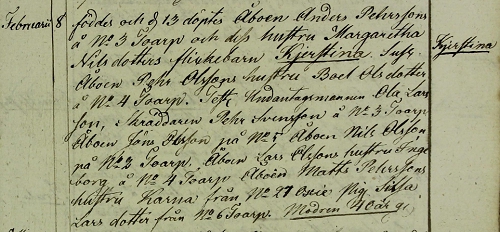 Februarii 8 föddes och d 13 döptes Åboen Anders Pehrssons
å No 3 Toarp och dess hustru Margaretha
Nils dotters flickebarn Kjerstina. Susc: Kjerstina
Åboen Pehr Olssons hustru Boel Ols dotter
å No 4 Toarp. Test: Undantagsmannen Ola Lars
son, Skräddaren Pehr Svensson å No 3 Toarp
Åboen Jöns Olsson på No 5 Åboen Nils Olsson
på No 2 Toarp. Åboen Lars Olssons hustru Inge
borg å No 4 Toarp Åboen Matts Pehrssons
hustru Karna från No 27 Oxie Pig. Sissa
Lars dotter från No 6 Toarp. Modren 40 år g: